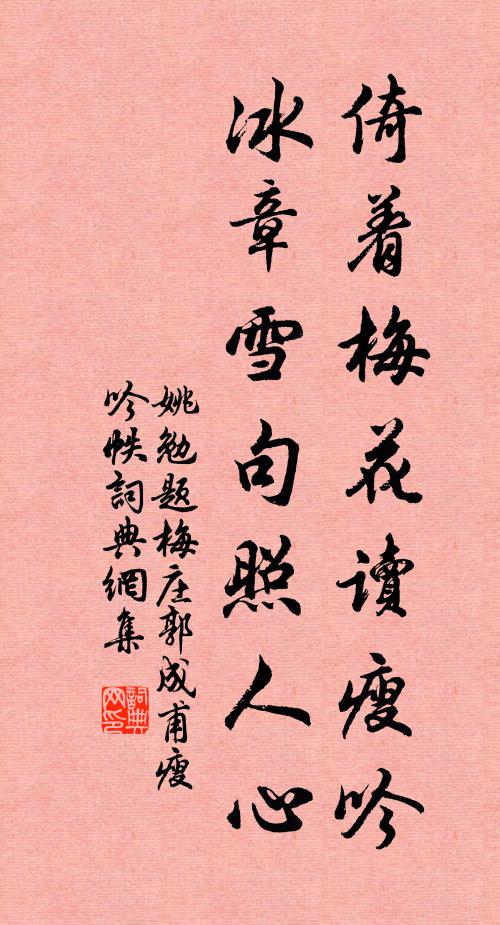 倚着梅花讀瘦吟
冰章雪句照人心
姚勉題梅庄郭成甫瘦
吟帙詞典網集
詞典網印